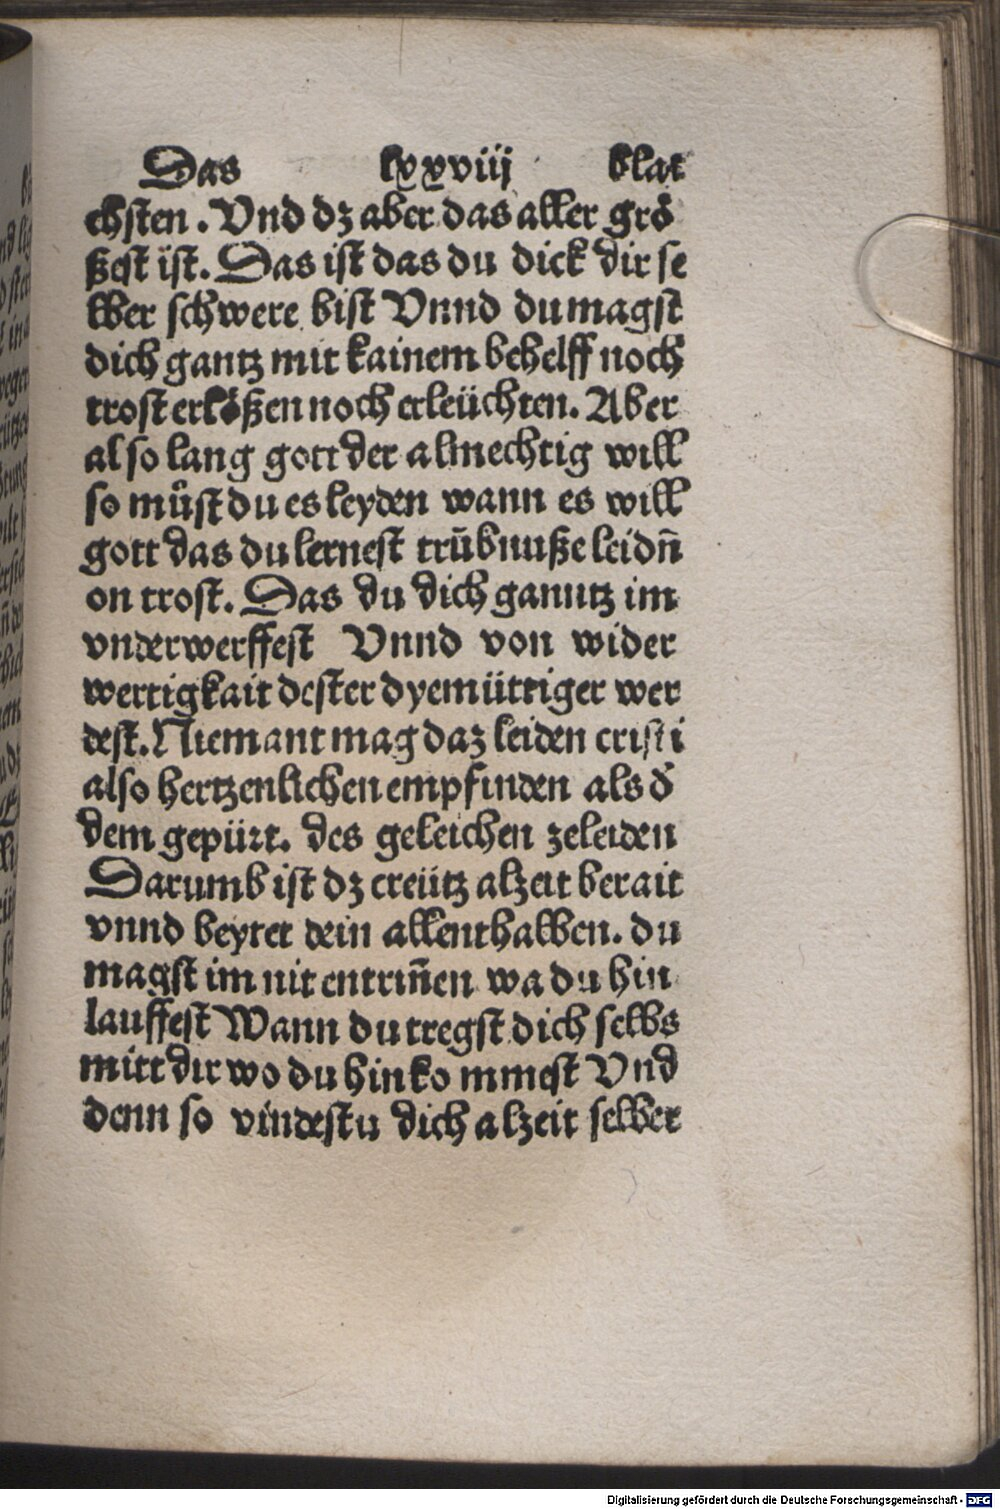 Das lxxviij blat
chsten. Vnd dz aber das aller grö
ßest ist. Das ist das du dick dir se
lber schwere bist Vnnd du magst
dich gantz mit kainem behelff noch
trost erlößen noch erleüchten. Aber
also lang gott der almechtig will
so můst du es leyden wann es will
gott das du lernest trübnuße leidn̄
on trost. Das du dich ganntz im
vnderwerffest Vnnd von wider
wertigkait dester dyemüttiger wer
dest. Niemant mag daz leiden cristi
also hertzenlichen empfinden als d̓
dem gepürt. des geleichen zeleiden
Darumb ist dz creütz alzeit berait
vnnd beytet dein allenthalben. du
magst im nit entrin̄en wa du hin
lauffest Wann du tregst dich selbs
mitt dir wo du hin kommest Vnd
denn so vindestu dich alzeit selber
Digitalisierung gefördert durch die Deutsche Forschungsgemeinschaft - DFG